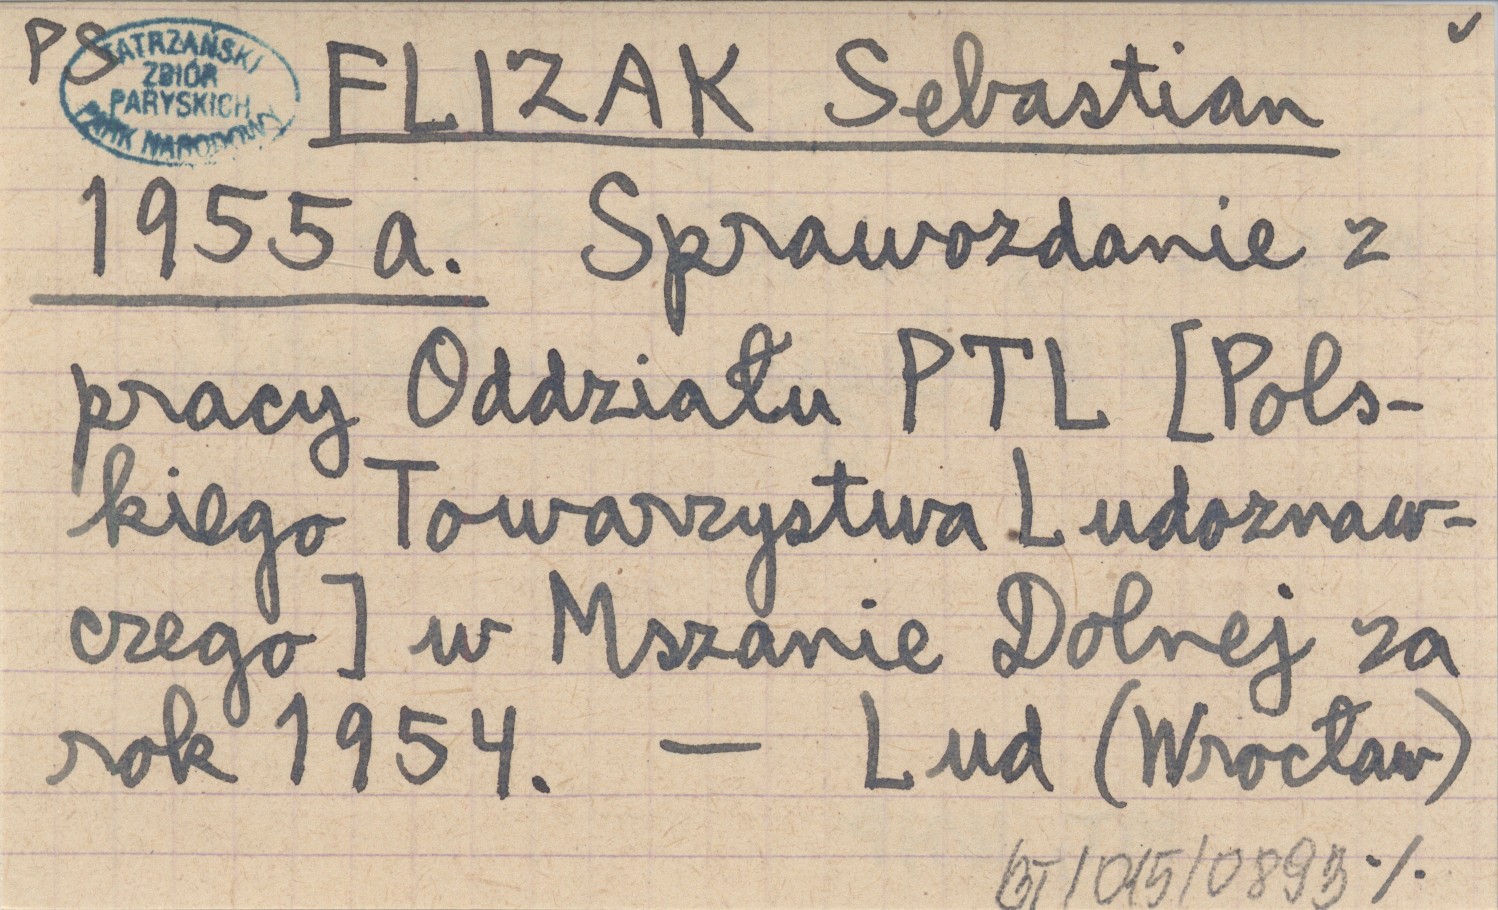 PS
TATRZAŃSKI
ZBIÓR
PARYSKICH
PARK NARODOWY
FLIZAK Sebastian
1955a. Sprawozdanie z
pracy Oddziału PTL [Pols-
kiego Towarzystwa Ludoznaw-
czego] w Mszanie Dolnej za
rok 1954. — Lud (Wrocław)
BT/015/0893 ./.